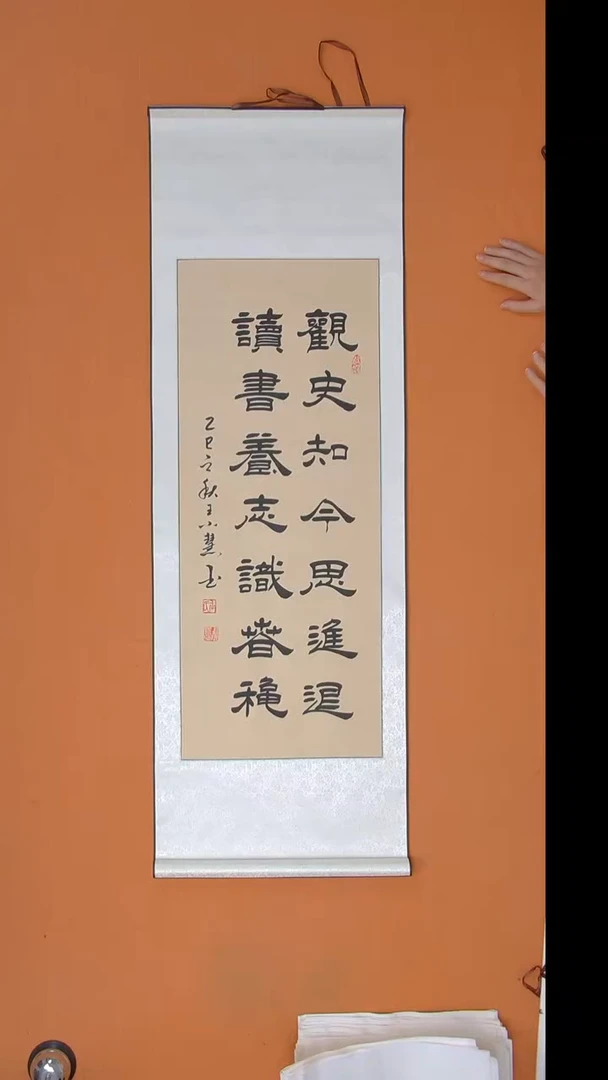 觀史知今思進退
讀書養志識春穐
乙巳之秋王小慧书